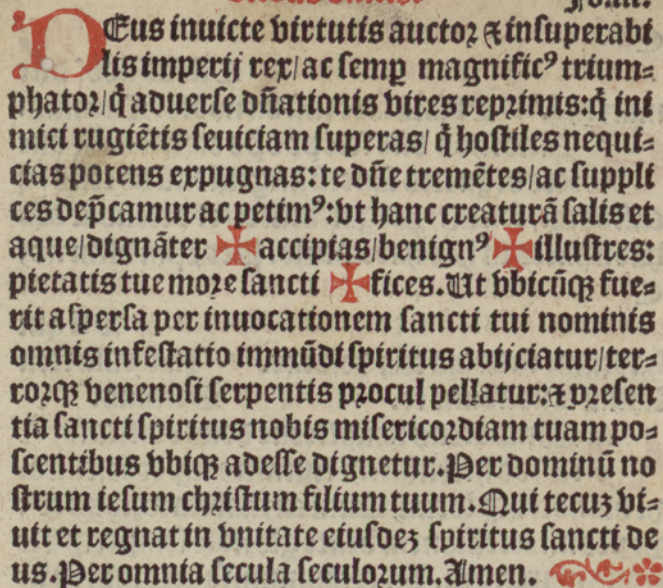 DEus inuicte virtutis auctoꝛ ⁊ insuperabi
lis imperij rex/ac semꝑ magnificꝰ trium⸗
phatoꝛ/q̇ aduerse dn̄ationis vires repꝛimis:q̇ ini
mici rugiẽtis seuiciam superas/ q̇ hostiles nequi⸗
cias potens expugnas:te dn̄e tremẽtes/ac suppli
ces dep̄camur ac petimꝰ:vt hanc creaturã salis et
aque/dignãter ✠accipias/benignꝰ ✠illustres:
pietatis tue moꝛe sancti ✠fices. Ut vbicũqꝫ fue⸗
rit aspersa per inuocationem sancti tui nominis
omnis infestatio immũdi spiritus abijciatur/ter⸗
roꝛqꝫ venenosi serpentis pꝛocul pellatur:⁊ pꝛesen
tia sancti spiritus nobis misericoꝛdiam tuam po⸗
scentibus vbiqꝫ adesse dignetur. Per dominũ no
strum iesum chꝛistum filium tuum. Qui tecuꝫ vi⸗
uit et regnat in vnitate eiusdeꝫ spiritus sancti de
us. Per omnia secula seculoꝛum. Amen.